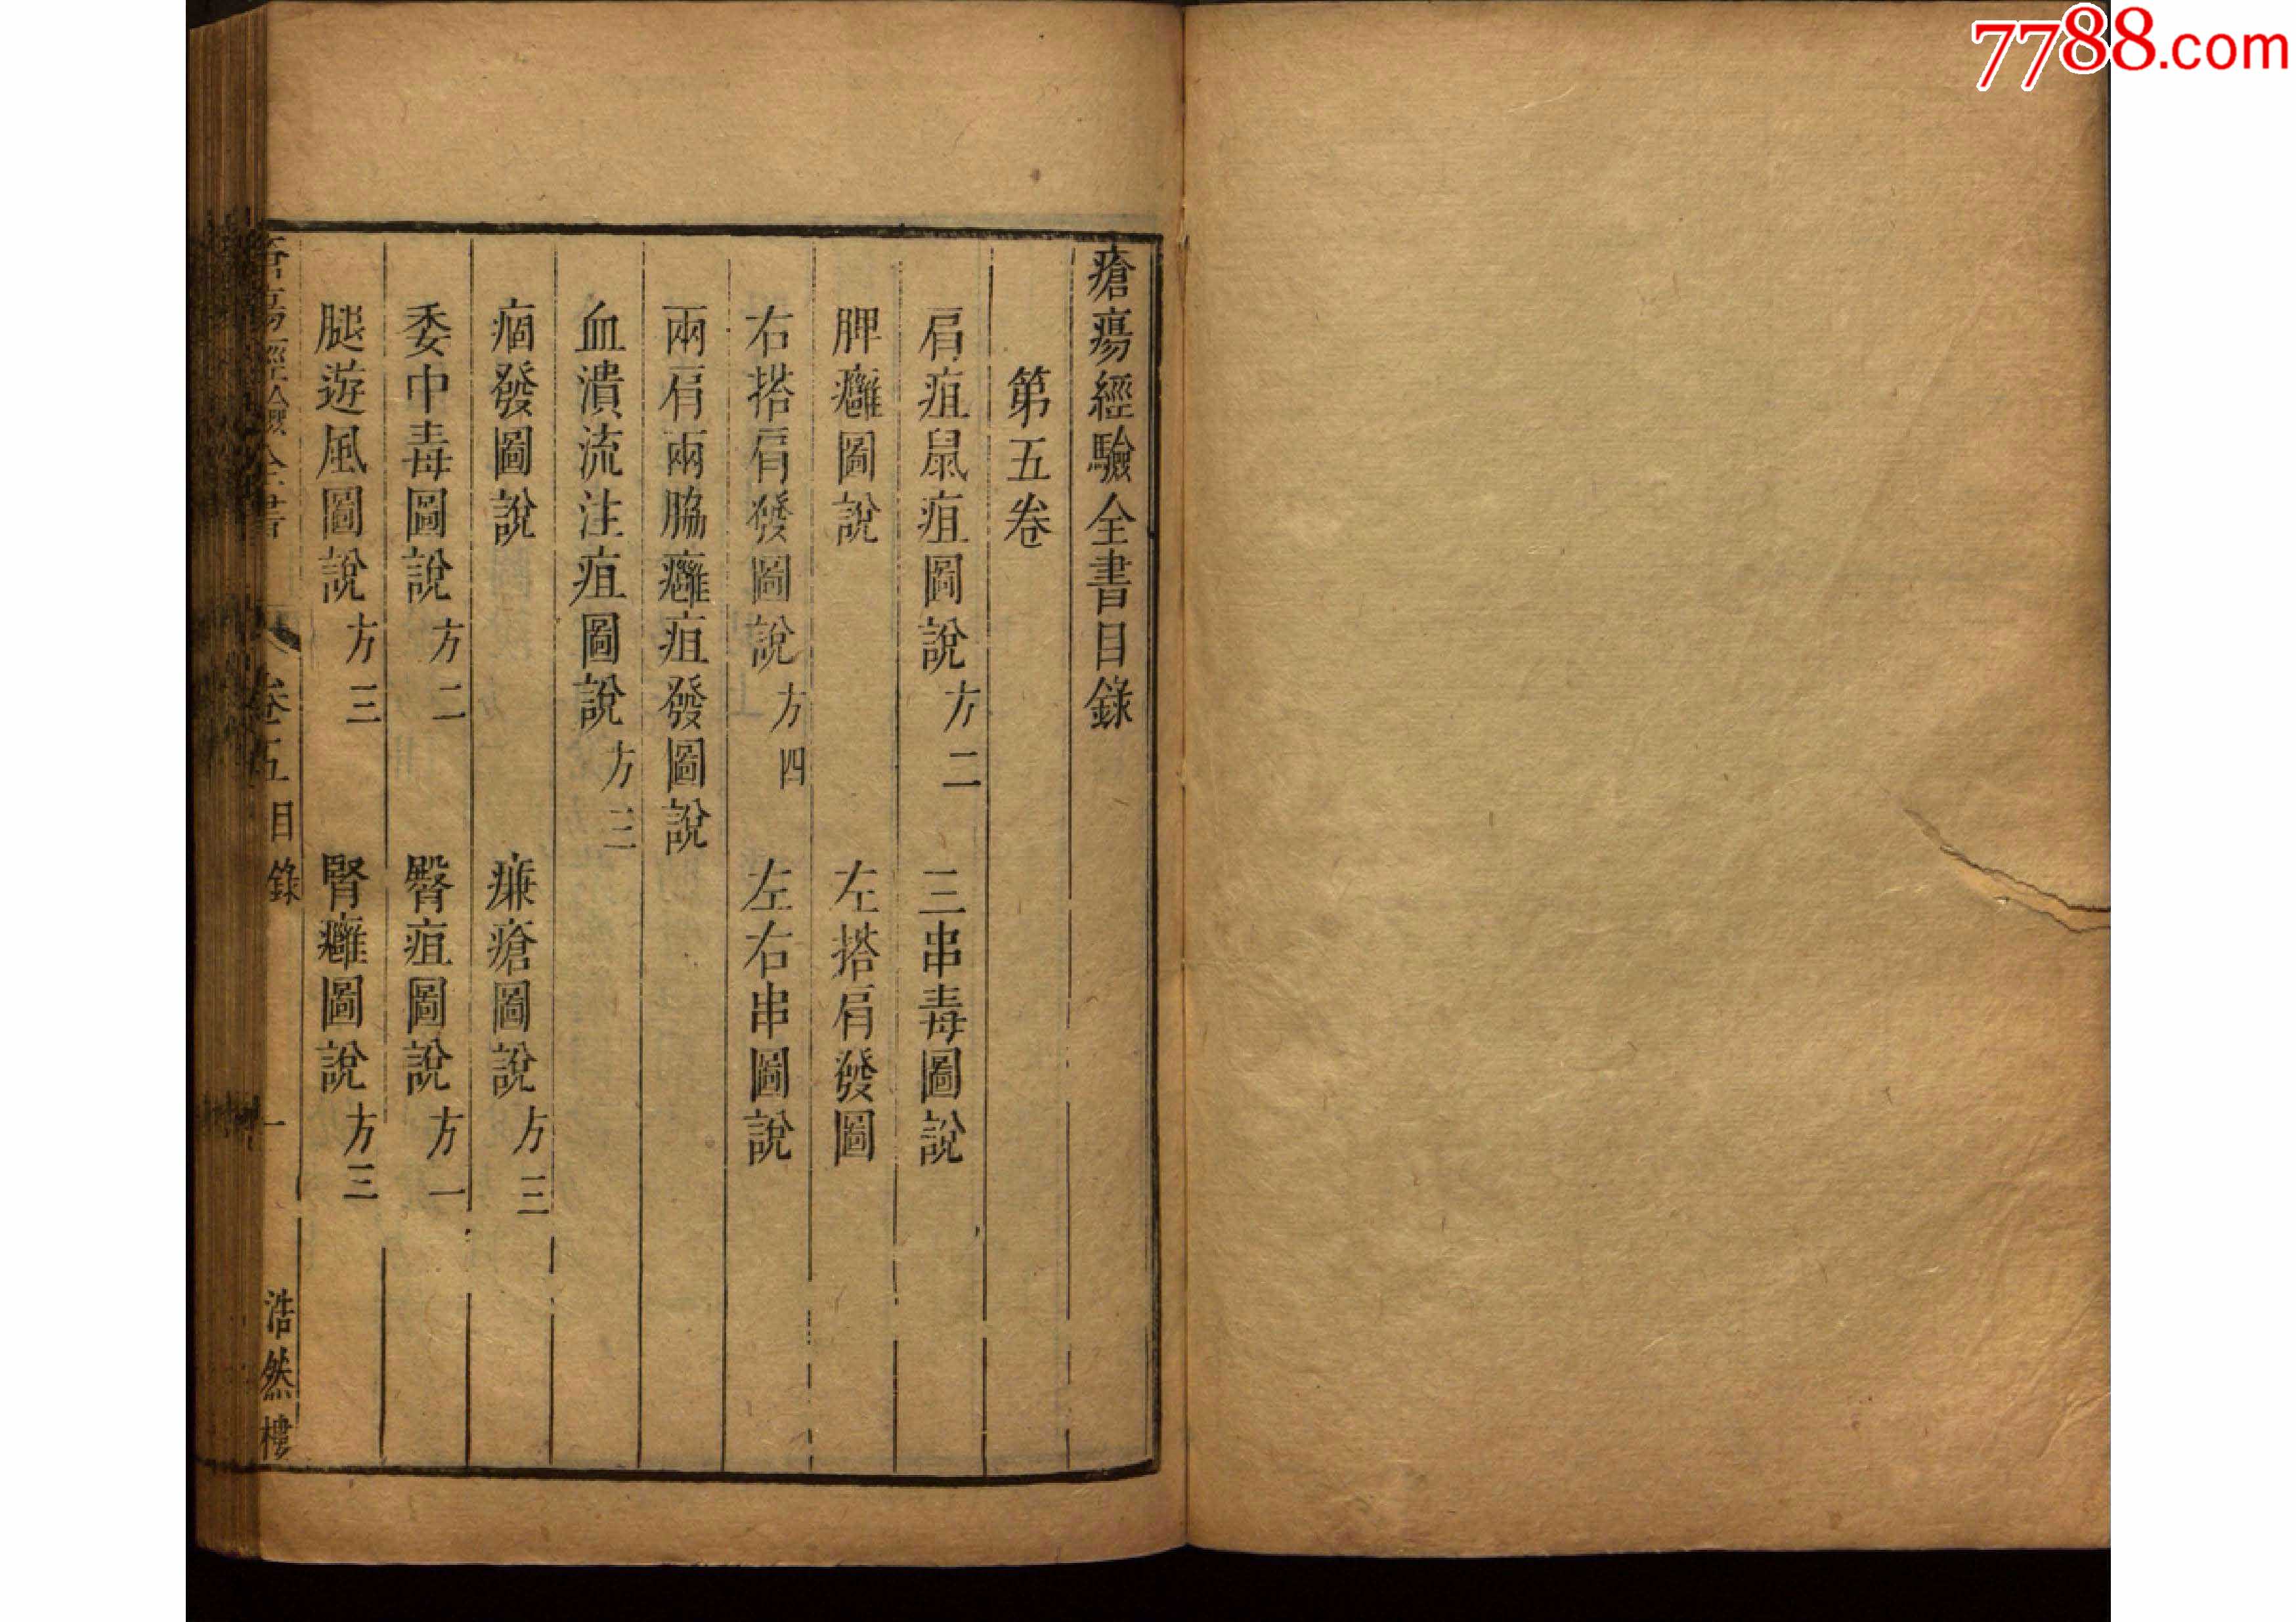 瘡瘍經驗全書目錄
第五卷
肩疽鼠疽圖說 方二 三串毒圖說
脾癰圖說 左搭肩發圖
右搭肩發圖說 方四 左右串圖說
兩肩兩脇癰疽發圖說
血潰流注疽圖說 方三
痼發圖說 㾾瘡圖說 方三
委中毒圖說 方二 臀疽圖說 方一
腿遊風圖說 方三 腎癰圖說 方三
卷五目錄 一 浩然樓
7788.com